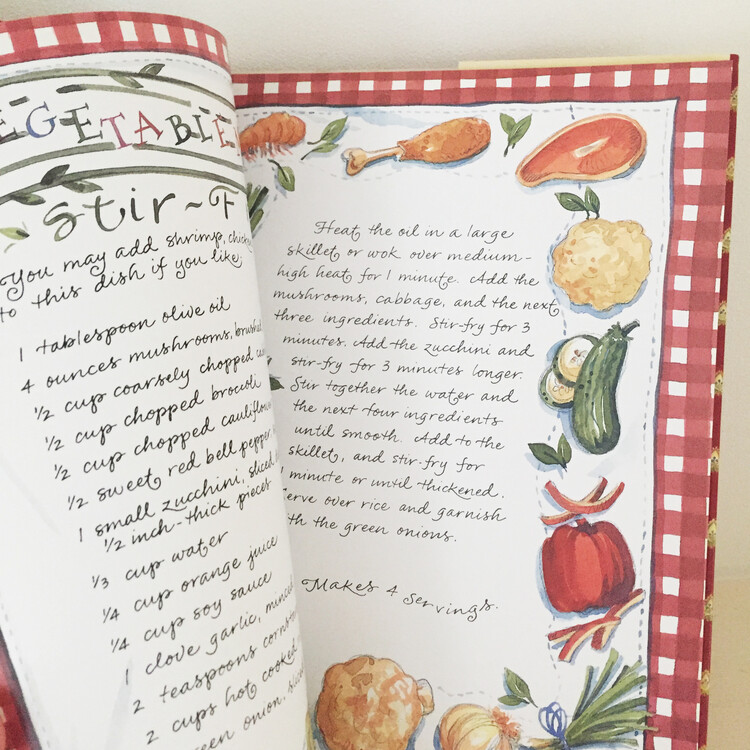 VEGETABLE
Stir-F
You may add shrimp, chicken
to this dish if you like.
1 tablespoon olive oil
4 ounces mushrooms, brushed
1/2 cup coarsely chopped
1/2 cup chopped brocoli
1/2 cup chopped cauliflower
1/2 sweet red bell pepper
1 small zucchini, sliced
1/2 inch-thick pieces
1/3 cup water
1/4 cup orange juice
1/4 cup soy sauce
1 clove garlic, minced
2 teaspoons cornstarch
2 cups hot cooked
green onion,
Heat the oil in a large
skillet or wok over medium-
high heat for 1 minute. Add the
mushrooms, cabbage, and the next
three ingredients. Stir-fry for 3
minutes. Add the zucchini and
stir-fry for 3 minutes longer.
Stir together the water and
the next four ingredients
until smooth. Add to the
skillet, and stir-fry for
1 minute or until thickened.
Serve over rice and garnish
with the green onions.
Makes 4 servings.